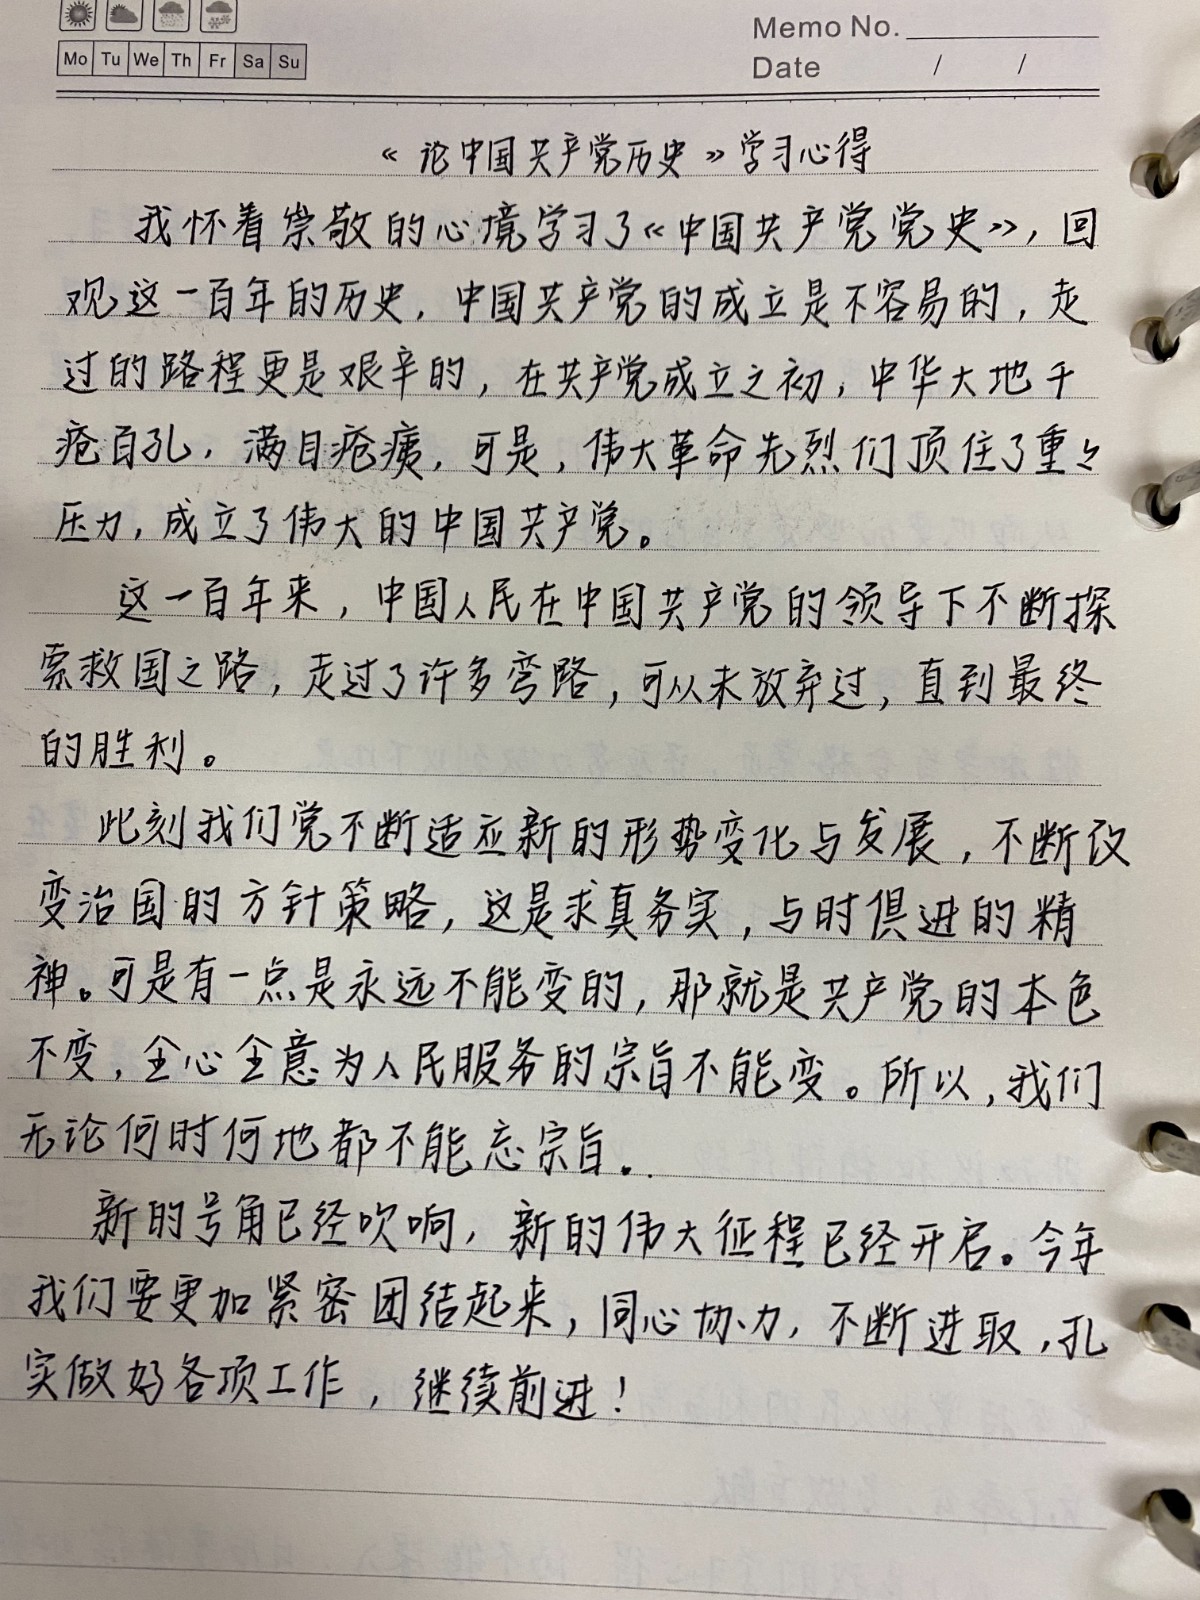 Memo No.
Mo Tu We Th Fr Sa Su
Date / /
《论中国共产党历史》学习心得
我怀着崇敬的心境学习了《中国共产党党史》，回
观这一百年的历史，中国共产党的成立是不容易的，走
过的路程更是艰辛的，在共产党成立之初，中华大地千
疮百孔，满目疮痍，可是，伟大革命先烈们顶住了重々
压力，成立了伟大的中国共产党。
这一百年来，中国人民在中国共产党的领导下不断探
索救国之路，走过了许多弯路，可从未放弃过，直到最终
的胜利。
此刻我们党不断适应新的形势变化与发展，不断改
变治国的方针策略，这是求真务实，与时俱进的精
神。可是有一点是永远不能变的，那就是共产党的本色
不变，全心全意为人民服务的宗旨不能变。所以，我们
无论何时何地都不能忘宗旨。
新的号角已经吹响，新的伟大征程已经开启。今年
我们要更加紧密团结起来，同心协力，不断进取，扎
实做好各项工作，继续前进！